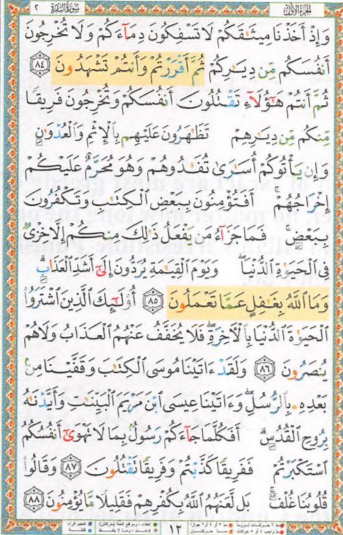 الجُزءُ الأوّل سُورَةُ البَقَرَةِ ٢
وَإِذْ أَخَذْنَا مِيثَٰقَكُمْ لَا تَسْفِكُونَ دِمَآءَكُمْ وَلَا تُخْرِجُونَ
أَنفُسَكُم مِّن دِيَٰرِكُمْ ثُمَّ أَقْرَرْتُمْ وَأَنتُمْ تَشْهَدُونَ ٨٤
ثُمَّ أَنتُمْ هَٰٓؤُلَآءِ تَقْتُلُونَ أَنفُسَكُمْ وَتُخْرِجُونَ فَرِيقًا
مِّنكُم مِّن دِيَٰرِهِمْ تَظَٰهَرُونَ عَلَيْهِم بِٱلْإِثْمِ وَٱلْعُدْوَٰنِ
وَإِن يَأْتُوكُمْ أُسَٰرَىٰ تُفَٰدُوهُمْ وَهُوَ مُحَرَّمٌ عَلَيْكُمْ
إِخْرَاجُهُمْ ۚ أَفَتُؤْمِنُونَ بِبَعْضِ ٱلْكِتَٰبِ وَتَكْفُرُونَ
بِبَعْضٍ ۚ فَمَا جَزَآءُ مَن يَفْعَلُ ذَٰلِكَ مِنكُمْ إِلَّا خِزْىٌ
فِى ٱلْحَيَوٰةِ ٱلدُّنْيَا ۖ وَيَوْمَ ٱلْقِيَٰمَةِ يُرَدُّونَ إِلَىٰٓ أَشَدِّ ٱلْعَذَابِ ۗ
وَمَا ٱللَّهُ بِغَٰفِلٍ عَمَّا تَعْمَلُونَ ٨٥ أُو۟لَٰٓئِكَ ٱلَّذِينَ ٱشْتَرَوُا۟
ٱلْحَيَوٰةَ ٱلدُّنْيَا بِٱلْءَاخِرَةِ ۖ فَلَا يُخَفَّفُ عَنْهُمُ ٱلْعَذَابُ وَلَا هُمْ
يُنصَرُونَ ٨٦ وَلَقَدْ ءَاتَيْنَا مُوسَى ٱلْكِتَٰبَ وَقَفَّيْنَا مِنۢ
بَعْدِهِۦ بِٱلرُّسُلِ ۖ وَءَاتَيْنَا عِيسَى ٱبْنَ مَرْيَمَ ٱلْبَيِّنَٰتِ وَأَيَّدْنَٰهُ
بِرُوحِ ٱلْقُدُسِ ۗ أَفَكُلَّمَا جَآءَكُمْ رَسُولٌۢ بِمَا لَا تَهْوَىٰٓ أَنفُسُكُمُ
ٱسْتَكْبَرْتُمْ فَفَرِيقًا كَذَّبْتُمْ وَفَرِيقًا تَقْتُلُونَ ٨٧ وَقَالُوا۟
قُلُوبُنَا غُلْفٌۢ ۚ بَل لَّعَنَهُمُ ٱللَّهُ بِكُفْرِهِمْ فَقَلِيلًا مَّا يُؤْمِنُونَ ٨٨
١٣